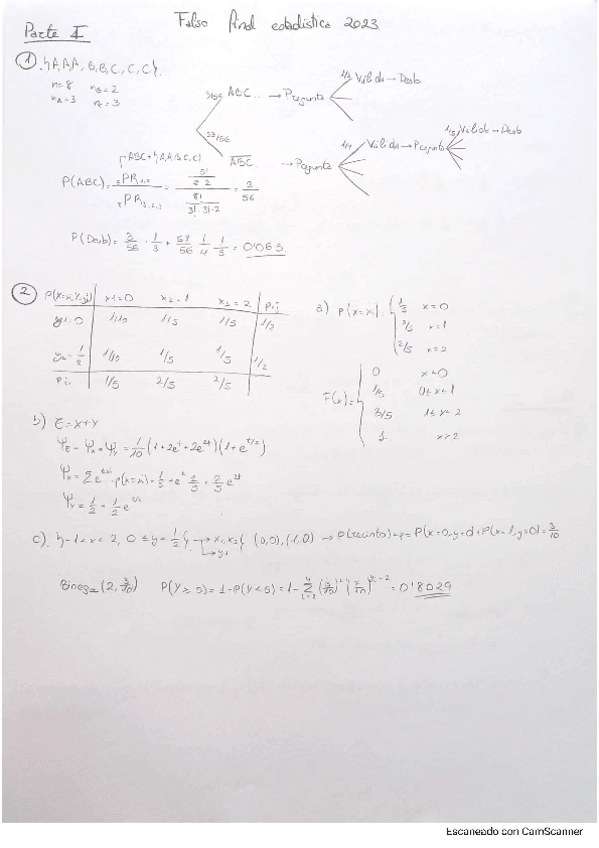 Falso final estadística 2023
Parte I
1 {A,A,A,B,B,C,C,C}.
n=8 nB=2
nA=3 nC=3
3/56 ABC... → Pregunta 1/3 Válida → Desb
53/56 ABC... → Pregunta 1/4 Válida → Pregunta 1/5 Válida → Desb
ABC+{A,A,B,C,C}
P(ABC) = PR2,2 / PR3,2,3 = 5!/2·2 / 8!/3!·3!·2 = 3/56
P(Desb) = 3/56 · 1/3 + 53/56 · 1/4 · 1/5 = 0'065.
2 P(X=xi,Y=yj) x1=0 x2=1 x3=2 P.j
y1=0 1/10 1/5 1/5 1/2
y2=1/2 1/10 1/5 1/5 1/2
Pi. 1/5 2/5 2/5
a) P(X=xi) { 1/5 x=0
2/5 x=1
2/5 x=2
F(x)= { 0 x<0
1/5 0≤x<1
3/5 1≤x<2
1
b) Z=X+Y
ΨZ = ΨX · ΨY = 1/10 (1+2e^t+2e^2t)(1+e^t/2)
ΨX = Σ e^txi · p(x=xi) = 1/5 + e^t 2/5 + 2/5 e^2t
ΨY = 1/2 + 1/2 e^t/2
c) {-1<x<2, 0≤y<1/2} → x1,x2 { (0,0),(1,0) → P(recinto)=p= P(x=0,y=0)+P(x=1,y=0)=3/10
→ y1
Bineg (2, 3/10) P(Y≥5)=1-P(Y<5)=1-
=0'8029
Escaneado con CamScanner